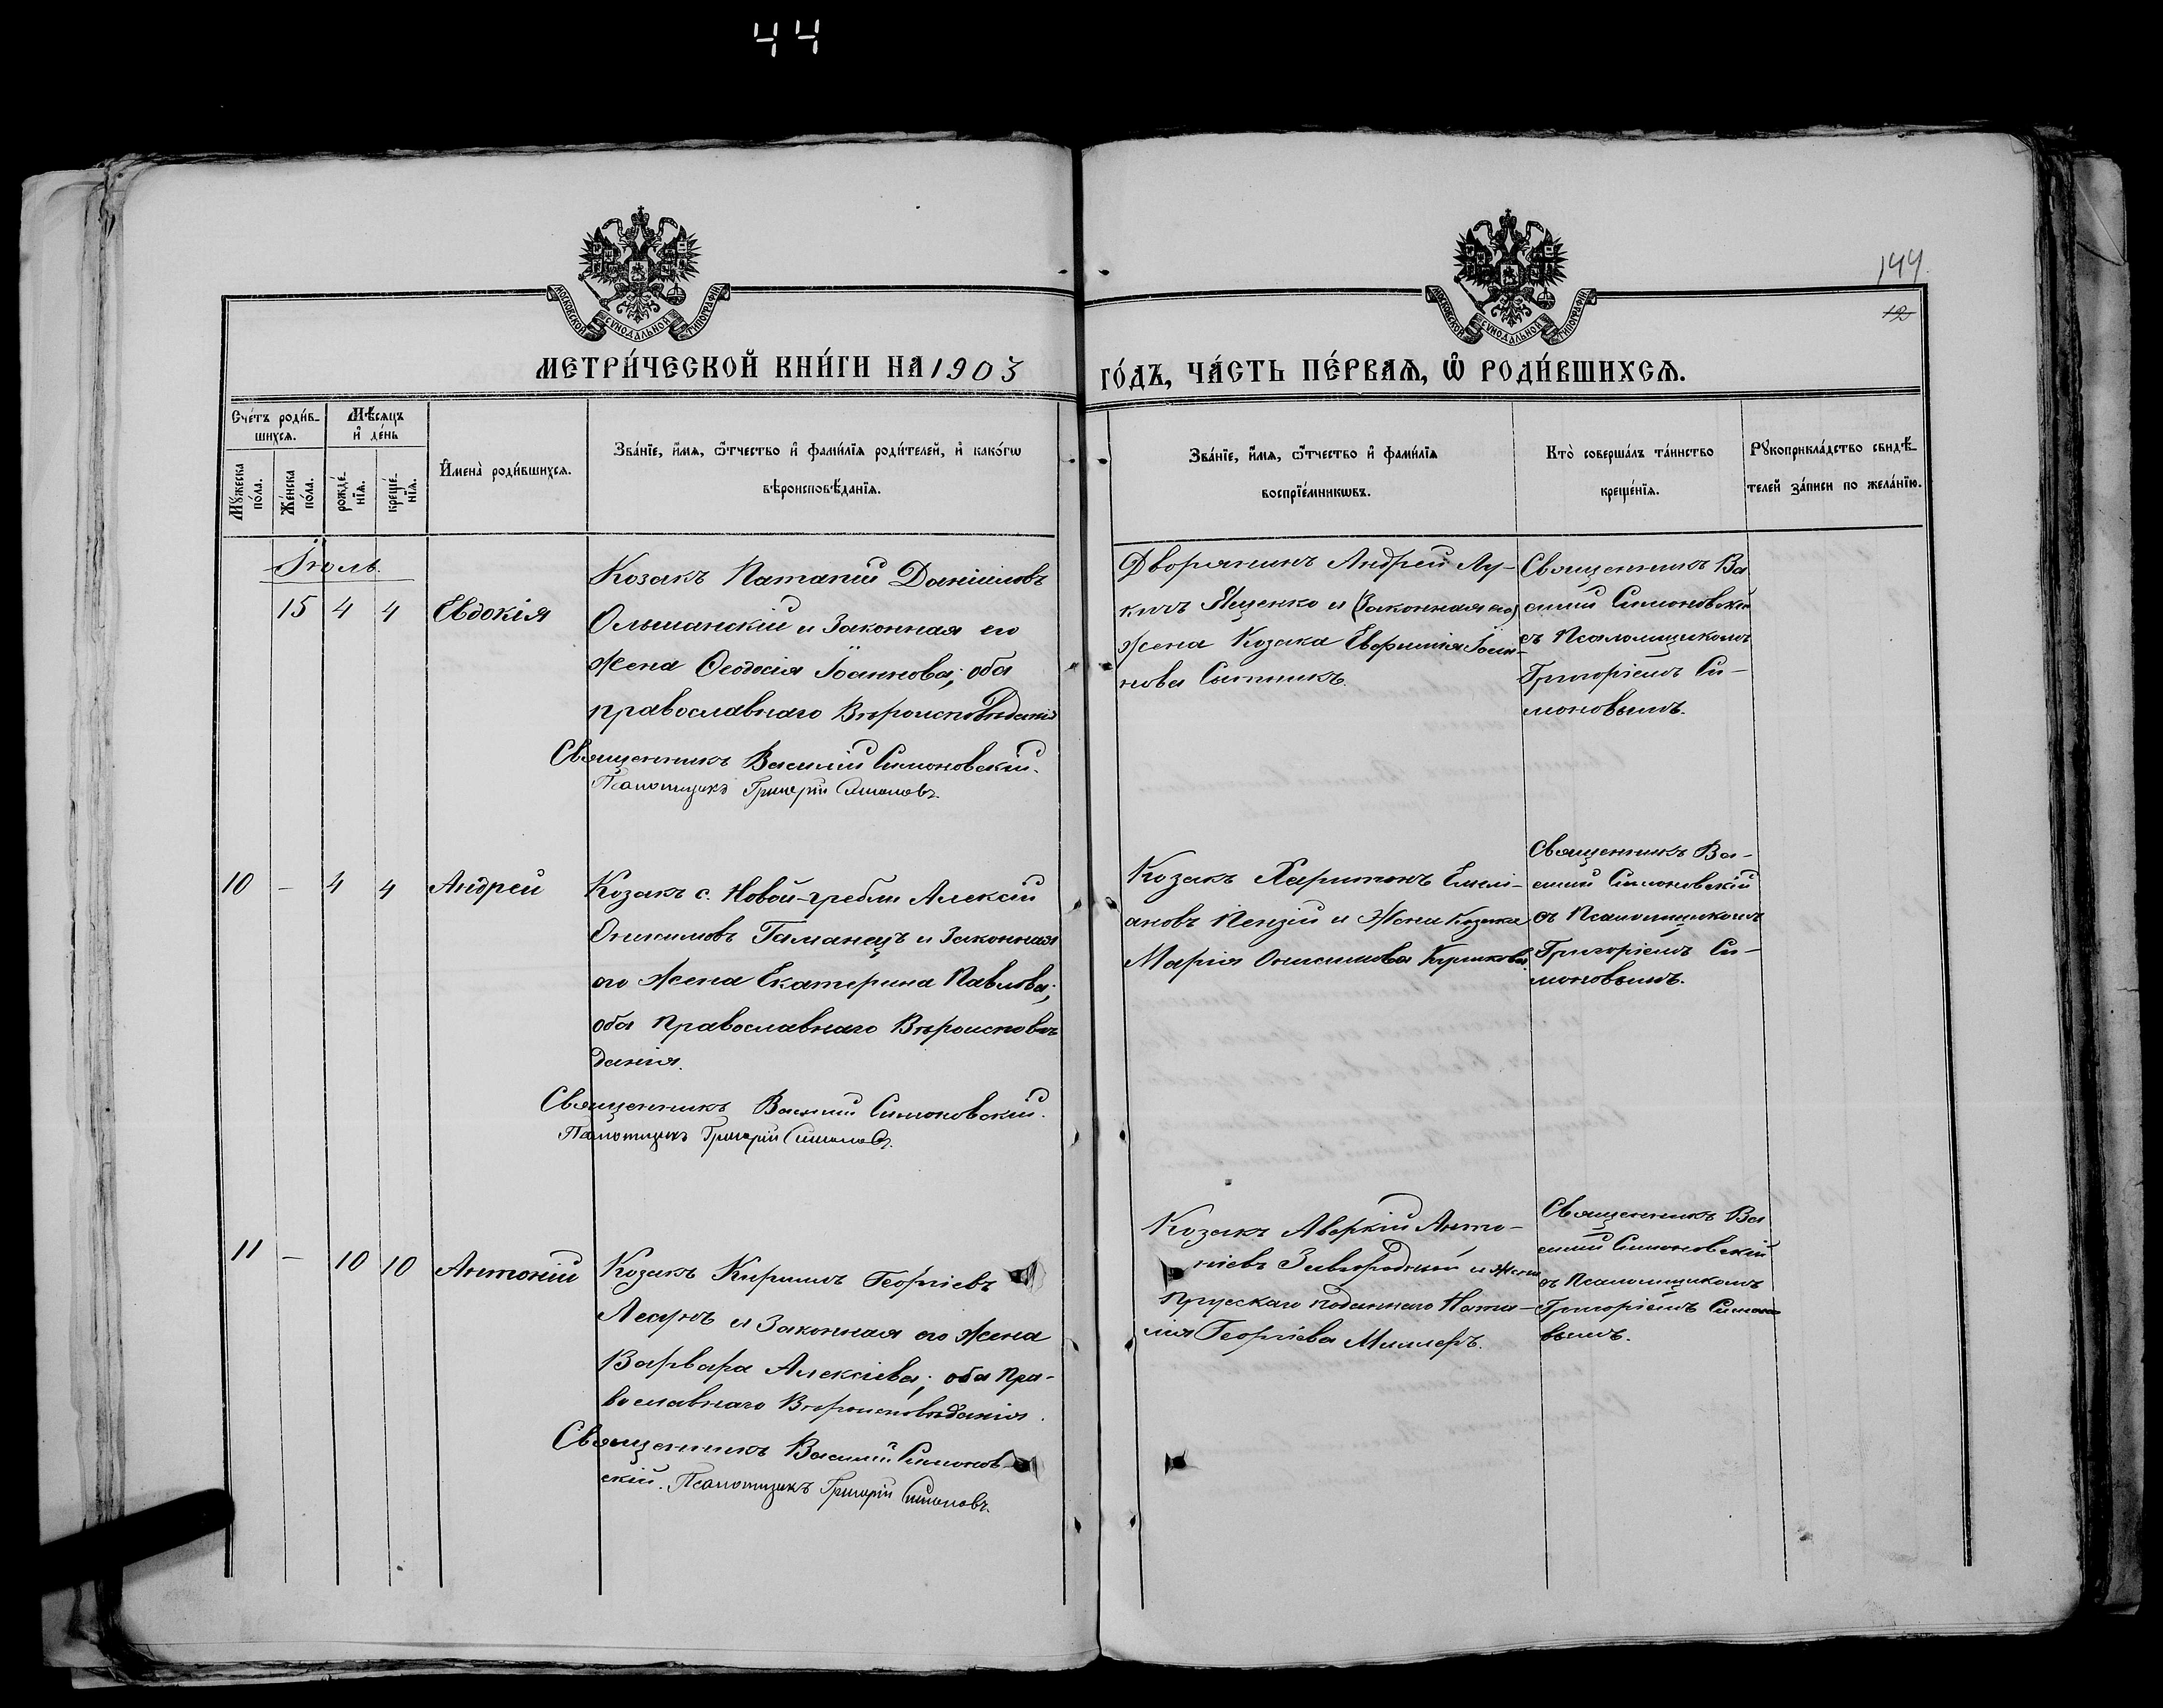 44
144
12
МОСКОВСКОЙ СѴНОДАЛЬНОЙ ТИПОГРАФІИ
МОСКОВСКОЙ СѴНОДАЛЬНОЙ ТИПОГРАФІИ
МЕТРИ́ЧЕСКОЙ КНИ́ГИ НА 1903
ГО́ДЪ, ЧА́СТЬ ПЕ́РВАѦ, Ѽ РОДИ́ВШИХСѦ.
Сче́тъ роди́в-
шихсѧ.
Мꙋжеска
по́ла.
Же́нска
по́ла.
Мѣ́сѧцъ
и҆ де́нь
рожде́-
нїѧ.
креще́-
нїѧ.
И҆мена̀ роди́вшихсѧ.
Зва́нїе, и҆́мѧ, ѻ҆́тчество и҆ фами́лїѧ роди́телей, и҆ како́гѡ
вѣроисповѣ́данїѧ.
Зва́нїе, и҆́мѧ, ѻ҆́тчество и҆ фами́лїѧ
воспрїе́мникѡвъ.
Кто̀ соверша́лъ та́инство
креще́нїѧ.
Рꙋкоприкла́дство свидѣ́-
телей за́писи по жела́нїю.
Іюль.
15 4 4 Евдокія
Козакъ Патапій Даніиловъ
Ольшанскій и законная его
жена Ѳеодосія Іоаннова; оба
православнаго Вѣроисповѣданія
Священникъ Василій Симоновскій.
Псаломщикъ Григорій Симоновъ.
Дворянинъ Андрей Лу-
кичъ Яценко и (законная его)
жена Козака Евфимія Іоан-
нова Сытникъ.
Священникъ Ва
силій Симоновскій
съ Псаломщикомъ
Григоріемъ Си-
моновымъ.
10 - 4 4 Андрей
Козакъ с. Новой-гребли Алексій
Онисимовъ Гаманецъ и законная
его жена Екатерина Павлова;
оба Православнаго Вѣроисповѣ
данія.
Священникъ Василій Симоновскій.
Псаломщикъ Григорій Симоновъ.
Козакъ Харитонъ Емелі-
ановъ Пензій и Жена Козака
Марія Онисимова Куликова.
Священникъ Ва-
силій Симоновскій
съ Псаломщикомъ
Григоріемъ Си-
моновымъ.
11 - 10 10 Антоній
Козакъ Кириллъ Георгіевъ
и законная его жена
Варвара Алексіева; оба Пра-
вославнаго Вѣроисповѣданія.
Священникъ Василій Симонов-
скій. Псаломщикъ Григорій Симоновъ.
Козакъ Аверкій Анто-
ніевъ Завгородній и Жена
Прусскаго подданнаго Ната-
лія Георгіева Миллеръ.
Священникъ Ва
силій Симоновскій
съ Псаломщикомъ
Григоріемъ Симоно
вымъ.